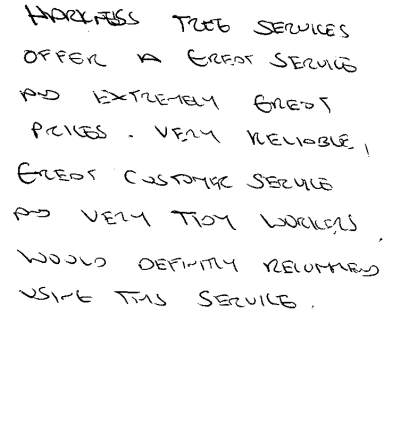 HARKNESS TREE SERVICES
OFFER A GREAT SERVICE
AND EXTREMELY GREAT
PRICES. VERY RELIABLE,
GREAT CUSTOMER SERVICE
AND VERY TIDY WORKERS.
WOULD DEFINITLY RECOMMEND
USING THIS SERVICE.